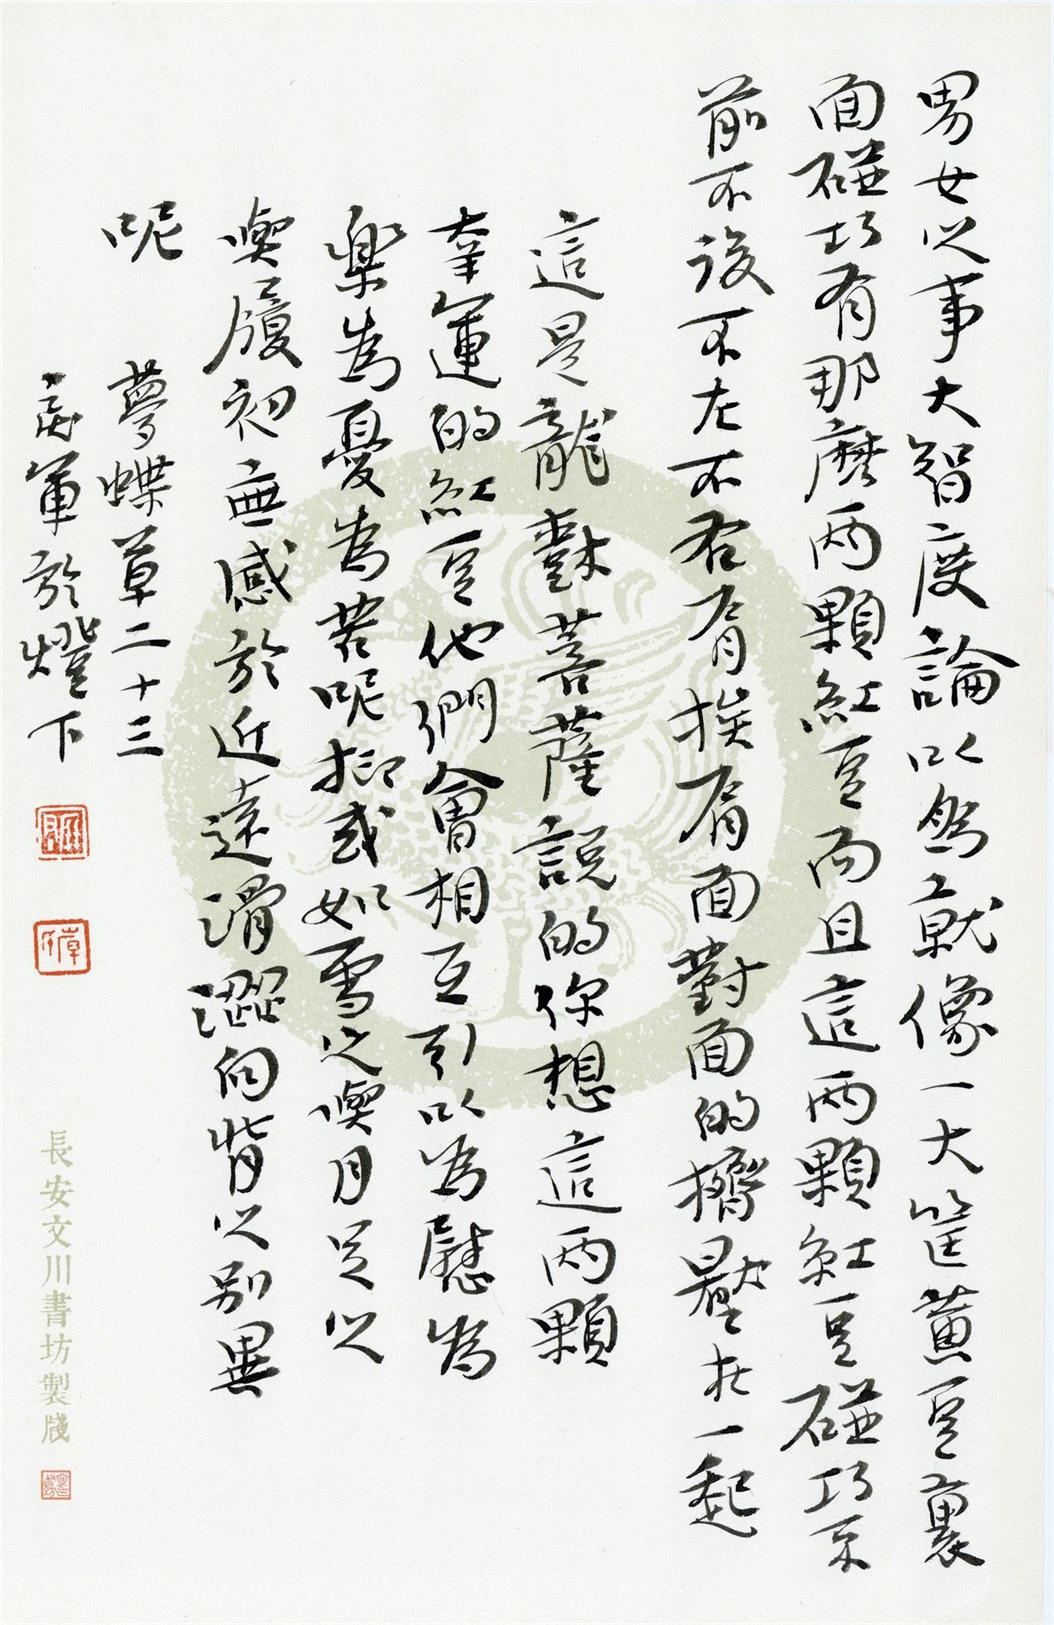 男女之事大智度論以為就像一大筐黃豆裏
面碰巧有那麼兩顆紅豆而且這兩顆紅豆碰巧不
前不後不左不右肩挨肩面對面的擠壓在一起
這是龍樹菩薩說的你想這兩顆
幸運的紅豆他們會相互引以為慰為
樂為憂為苦呢抑或如雪之喫月足之
喫履初無感於近遠滑澀向背之別異
呢 夢蝶草二十三
軍於燈下
長安文川書坊製牋